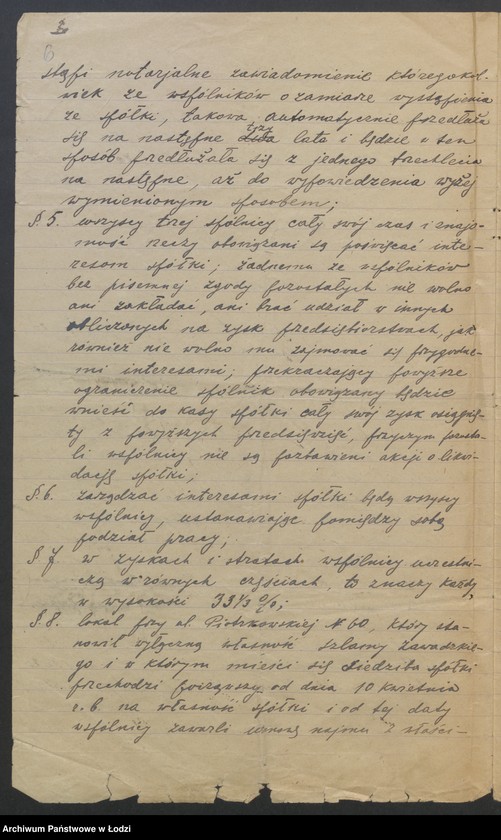 B
stąpi notarjalne zawiadomienie któregokol-
wiek ze wspólników o zamiarze wystąpienia
ze spółki, takowa automatycznie przedłuża
się na następne trzy lata i będzie w ten
sposób przedłużała się z jednego trzechlecia
na następne, aż do wypowiedzenia wyżej
wymienionym sposobem;
§ 5. wszyscy trzej spólnicy cały swój czas i znajo-
mość rzeczy obowiązani są poświęcać inte-
resom spółki; żadnemu ze wspólników
bez pisemnej zgody pozostałych nie wolno
ani zakładać, ani brać udział w innych
obliczonych na zysk przedsiębiorstwach, jak
również nie wolno mu zajmować się przygodne-
mi interesami, przekraczający powyższe
ograniczenie spólnik obowiązany będzie
wnieść do kasy spółki cały swój zysk osiągnię-
ty z powyższych przedsięwzięć, przyczym pozosta-
li wspólnicy nie są pozbawieni akcji o likwi-
dację spółki;
§ 6. zarządzać interesami spółki będą wszyscy
wspólnicy, ustanawiając pomiędzy sobą
podział pracy;
§ 7 w zyskach i stratach wspólnicy uczestni-
czą w równych częściach, to znaczy każdy
w wysokości 33 1/3 %;
§ 8. lokal przy ul. Piotrkowskiej № 60, który sta-
nowił wyłączną własność Szlamy Zawadzkie-
go i w którym mieści się siedziba spółki
przechodzi począwszy od dnia 10 kwietnia
r. b. na własność spółki i od tej daty
wspólnicy zawarli umowę najmu z właści-
Archiwum Państwowe w Łodzi